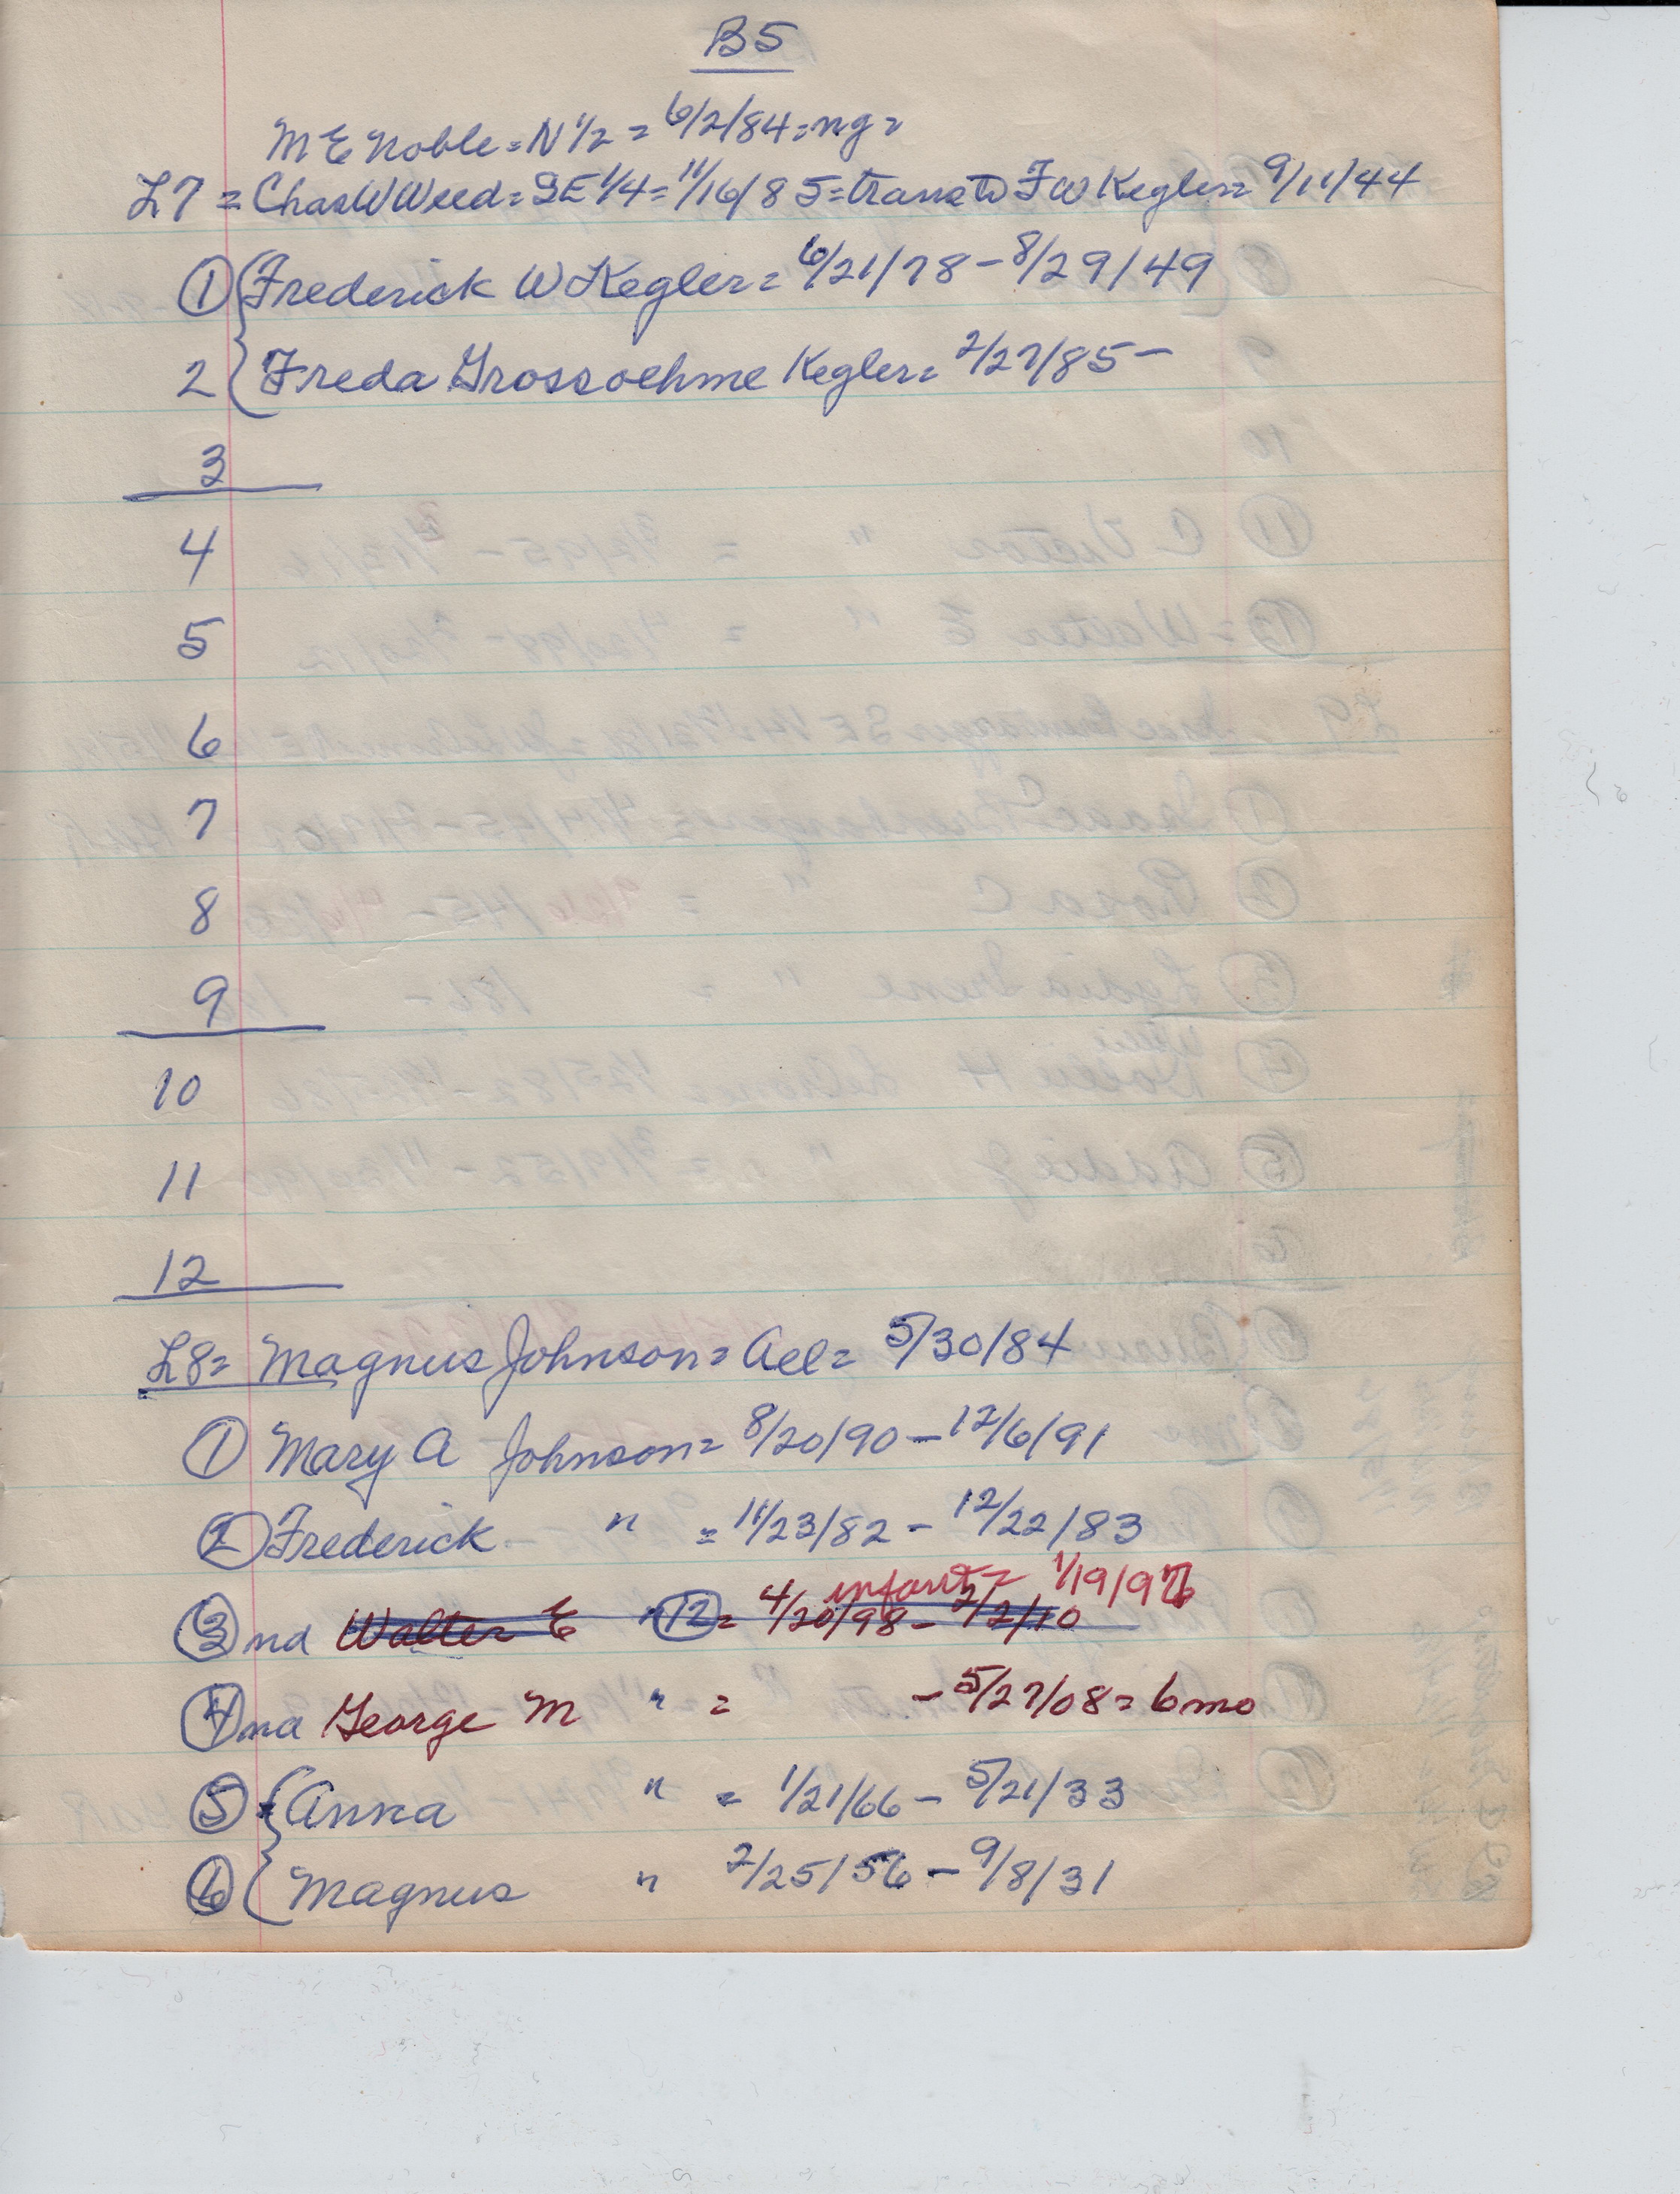 B5
M E Noble = N 1/2 = 6/2/84 = ng =
L7 = Chas W Weed = SE 1/4 = 11/16/85 = trans to F W Kegler = 9/11/44
1 Frederick W Kegler = 6/21/78 - 8/29/49
2 Freda Grossoehme Kegler = 2/27/85 -
3
4
5
6
7
8
9
10
11
12
L8 = Magnus Johnson = All = 5/30/84
1 Mary A Johnson = 8/20/90 - 12/6/91
2 Frederick " = 11/23/82 - 12/22/83
infant = 1/19/97
3 nd Walter E " 12 = 4/20/98 - 2/2/10
4 na George M " = - 5/27/08 = 6 mo
5 = Anna " = 1/21/66 - 5/21/33
6 Magnus " 2/25/56 - 9/8/31